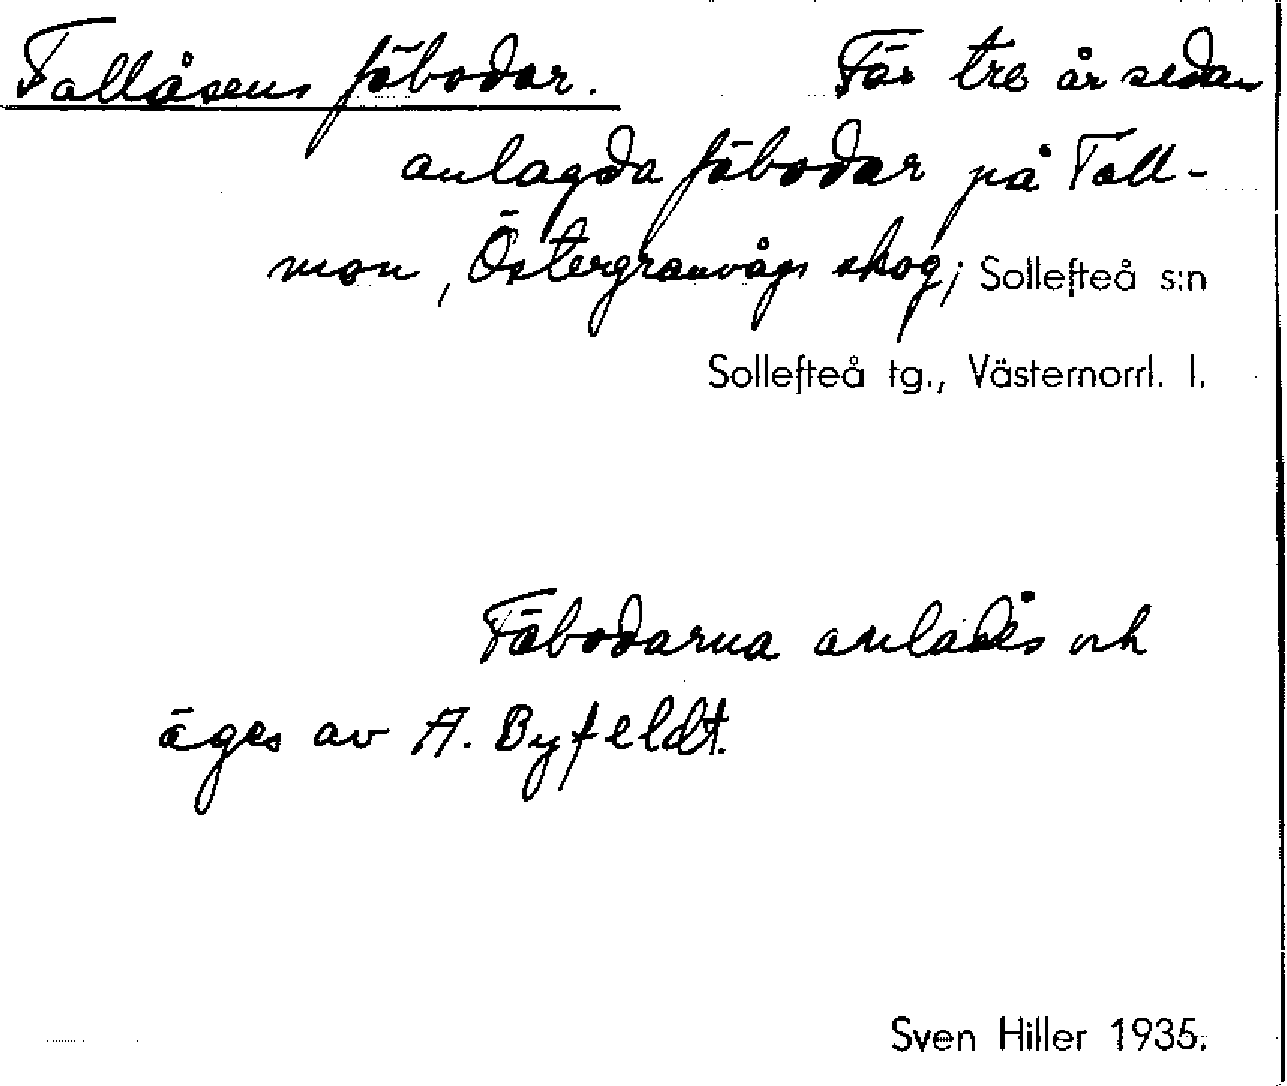 Tallåsens fäbodar. För tre år sedan
anlagda fäbodar på Tall-
mon, Östergranvågs skog; Sollefteå s:n
Sollefteå tg., Västernorrl. l.
Fäbodarna anlades och
äges av A. Byfeldt.
Sven Hiller 1935.